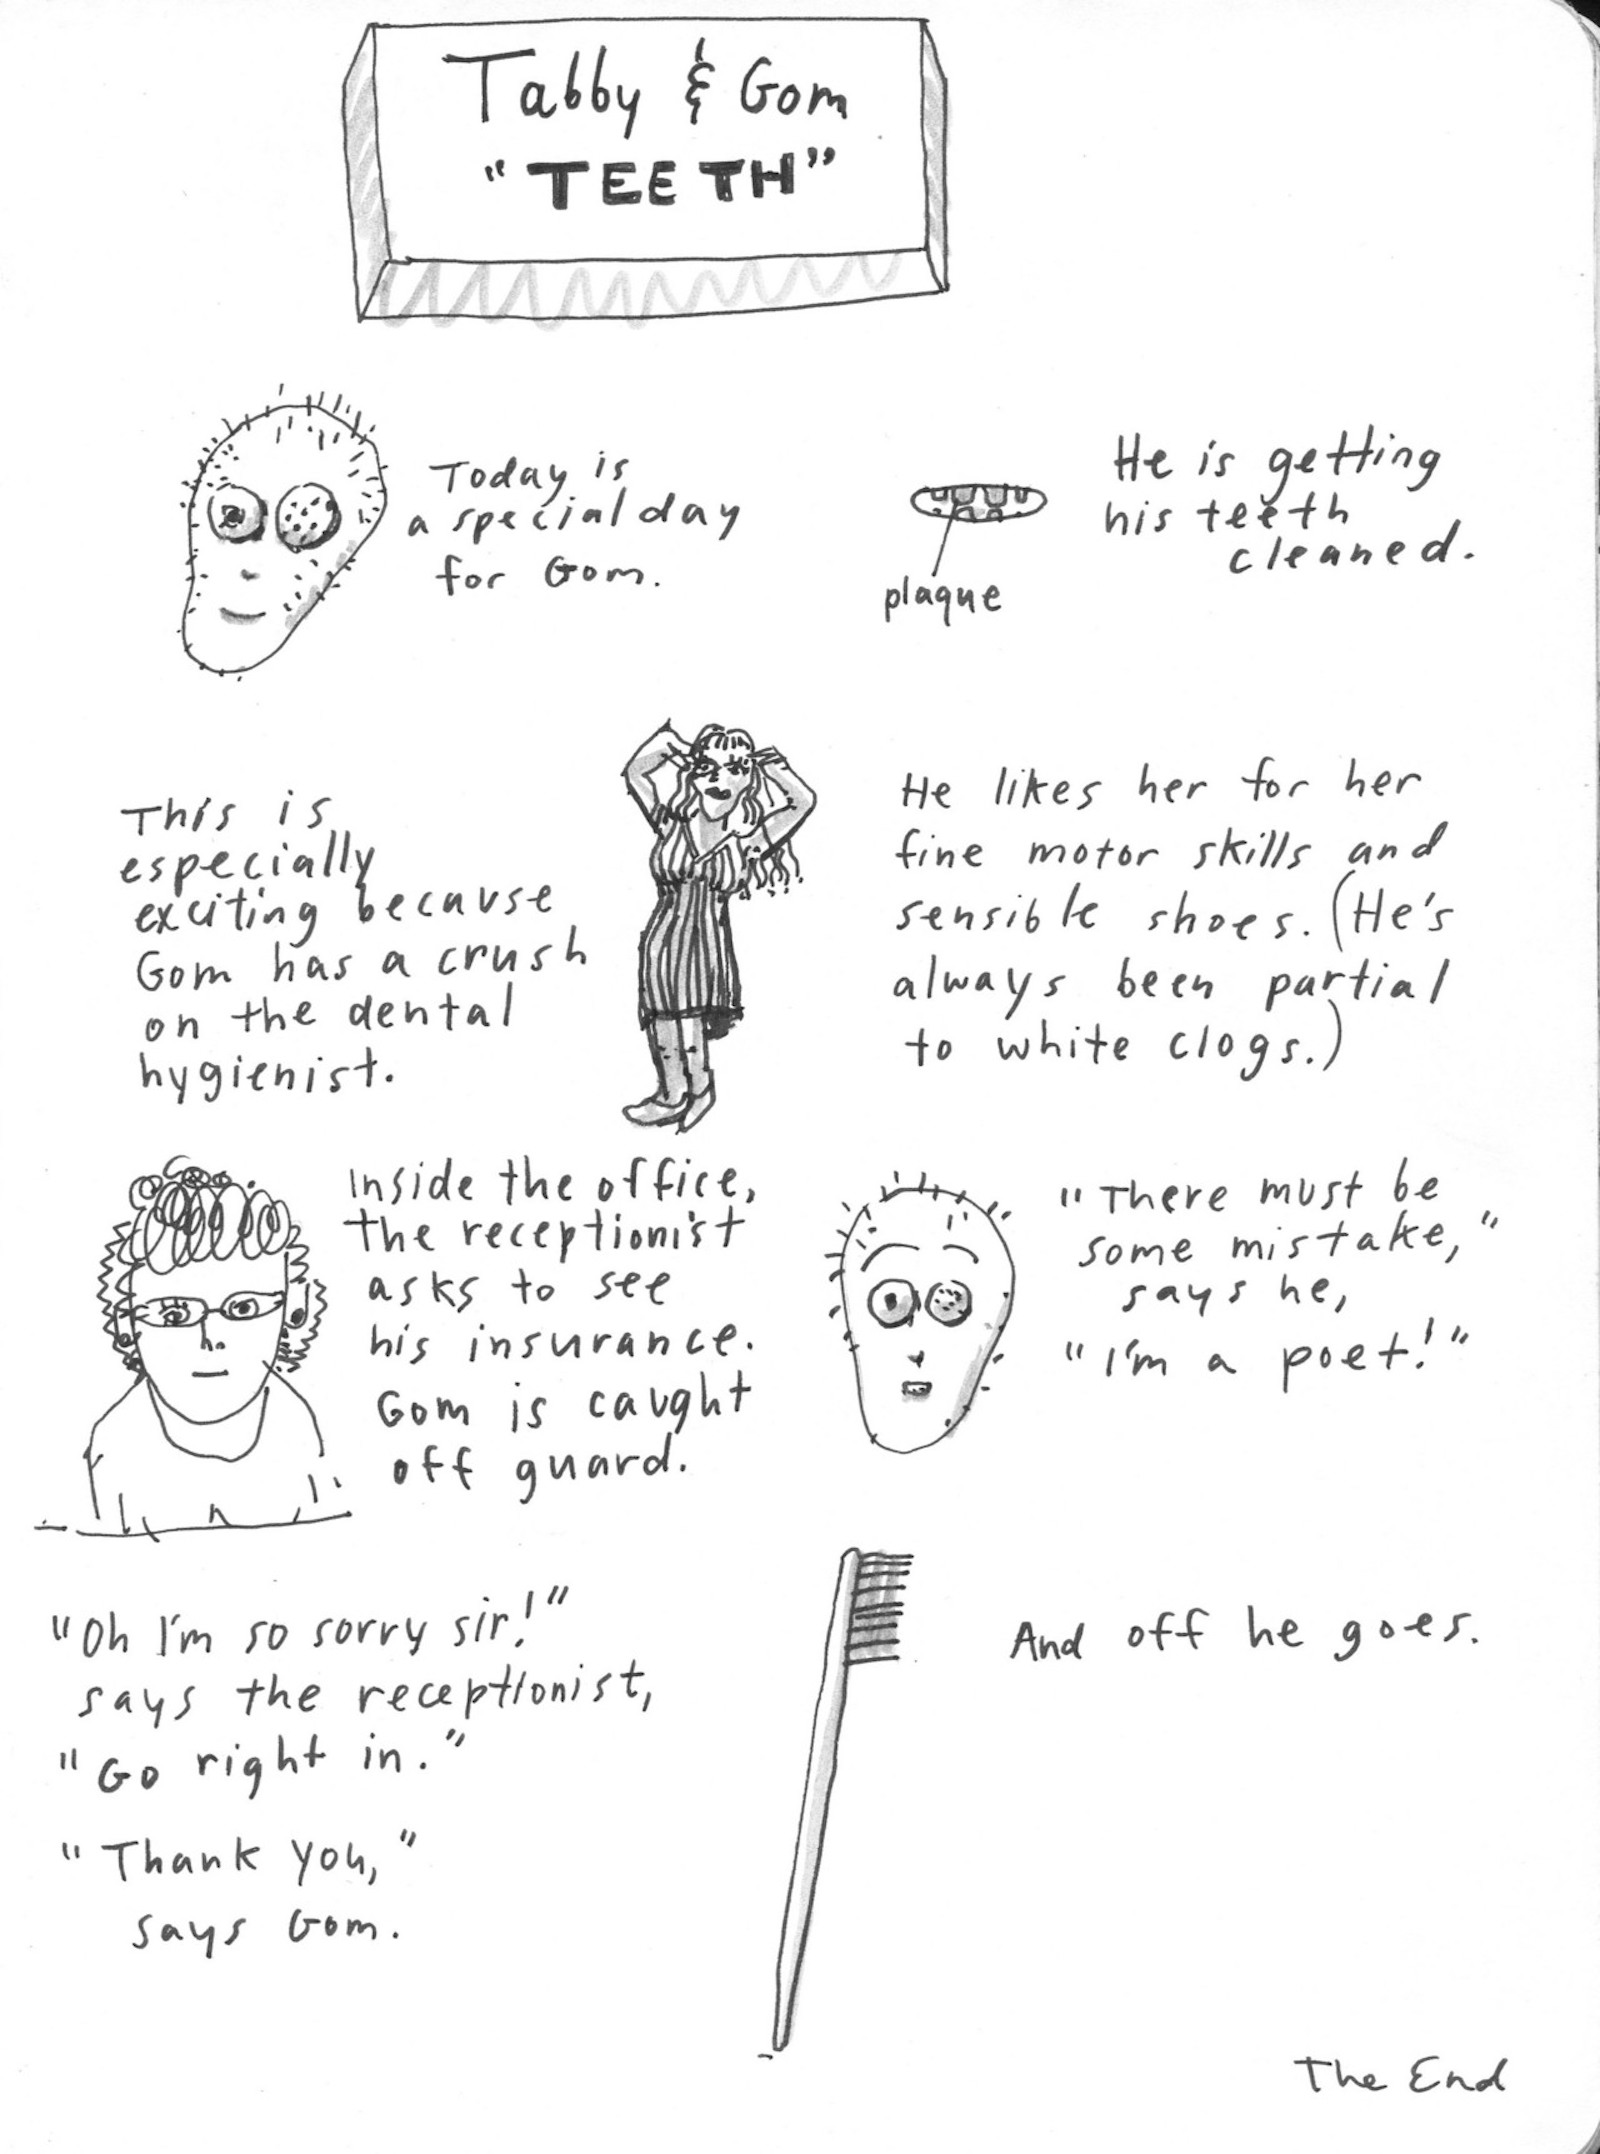 Tabby & Gom
"TEETH"
Today is
a special day
for Gom.
plaque
He is getting
his teeth
cleaned.
This is
especially
exciting because
Gom has a crush
on the dental
hygienist.
He likes her for her
fine motor skills and
sensible shoes. (He's
always been partial
to white clogs.)
Inside the office,
the receptionist
asks to see
his insurance.
Gom is caught
off guard.
"There must be
some mistake,"
says he,
"I'm a poet!"
"Oh I'm so sorry sir!"
says the receptionist,
"Go right in."
"Thank you,"
says Gom.
And off he goes.
The End